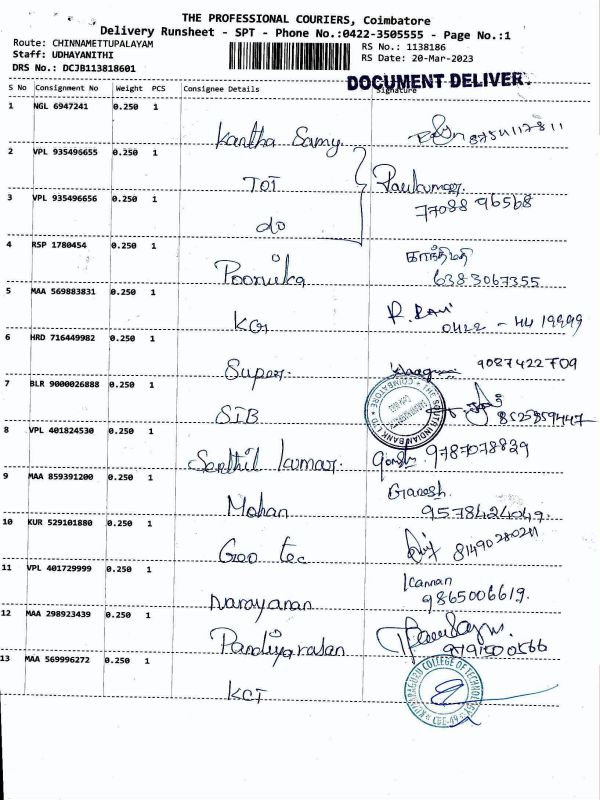 THE PROFESSIONAL COURIERS, Coimbatore
Delivery Runsheet - SPT - Phone No.:0422-3505555 - Page No.:1
Route: CHINNAMETTUPALAYAM
RS No.: 1138186
Staff: UDHAYANITHI
RS Date: 20-Mar-2023
DRS No.: DCJB113818601
DOCUMENT DELIVER.
S No Consignment No Weight PCS Consignee Details Signature
1 NGL 6947241 0.250 1
Kantha Samy 8754117811
2 VPL 935496655 0.250 1
TOI
3 VPL 935496656 0.250 1
77088 96568
do
4 RSP 1780454 0.250 1
காந்திமதி
Poornika 6383067355
5 MAA 569883831 0.250 1
R. Ravi
KG 0422 - 44 19999
6 HRD 716449982 0.250 1
Super. 9087422709
7 BLR 9000026888 0.250 1
THE SOUTH INDIAN BANK LTD COIMBATORE
SIB
8 VPL 401824530 0.250 1
Senthil kumar. 9787078829
9 MAA 859391200 0.250 1
Ganesh.
Mohan 9578424049.
10 KUR 529101880 0.250 1
Geo tec
11 VPL 401729999 0.250 1
Kannan
Narayanan 9865006619.
12 MAA 298923439 0.250 1
Pandiyarasan
13 MAA 569996272 0.250 1
KUMARAGURU COLLEGE OF TECHNOLOGY CBE-49
KCT